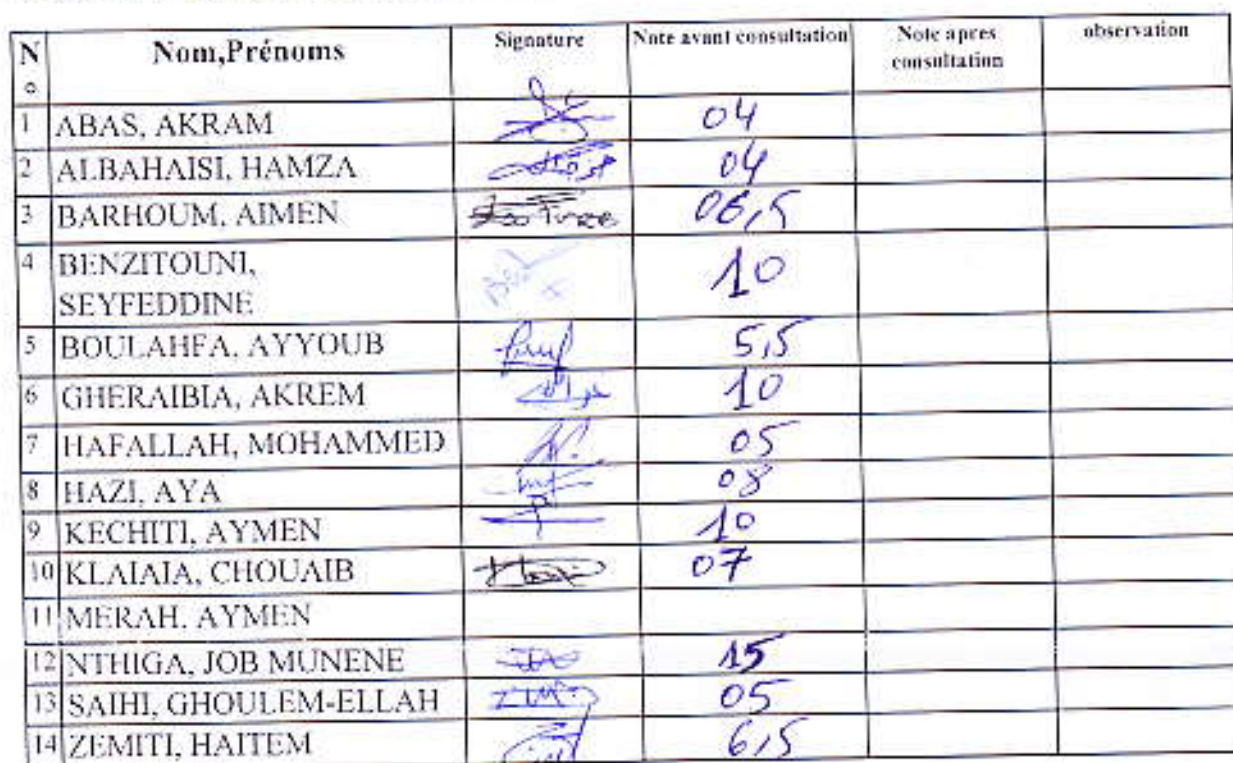 N° Nom,Prénoms Signature Note avant consultation Note apres consultation observation
1 ABAS, AKRAM 04
2 ALBAHAISI, HAMZA 04
3 BARHOUM, AIMEN 06,5
4 BENZITOUNI, SEYFEDDINE 10
5 BOULAHFA, AYYOUB 5,5
6 GHERAIBIA, AKREM 10
7 HAFALLAH, MOHAMMED 05
8 HAZI, AYA 08
9 KECHITI, AYMEN 10
10 KLAIAIA, CHOUAIB 07
11 MERAH, AYMEN
12 NTHIGA, JOB MUNENE 15
13 SAIHI, GHOULEM-ELLAH 05
14 ZEMITI, HAITEM 6,5